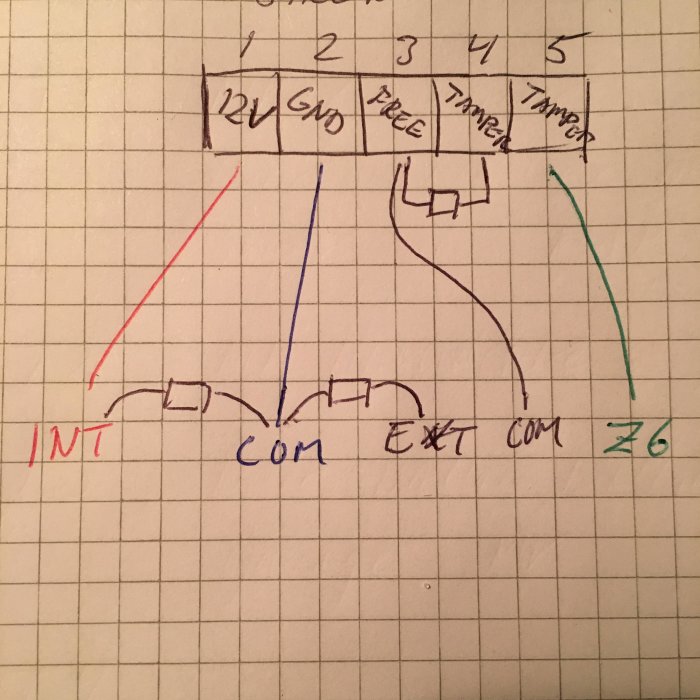 1 2 3 4 5
12V GND FREE TAMPER TAMPER
INT COM EXT COM Z6